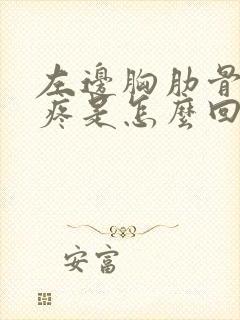 左邊胸肋骨
疼是怎麼回
安富